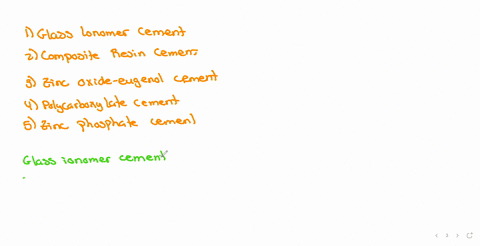 1) Glass Ionomer Cement
2) Composite Resin Cement
3) Zinc oxide-eugenol cement
4) Polycarboxylate cement
5) Zinc phosphate cement
Glass ionomer cement